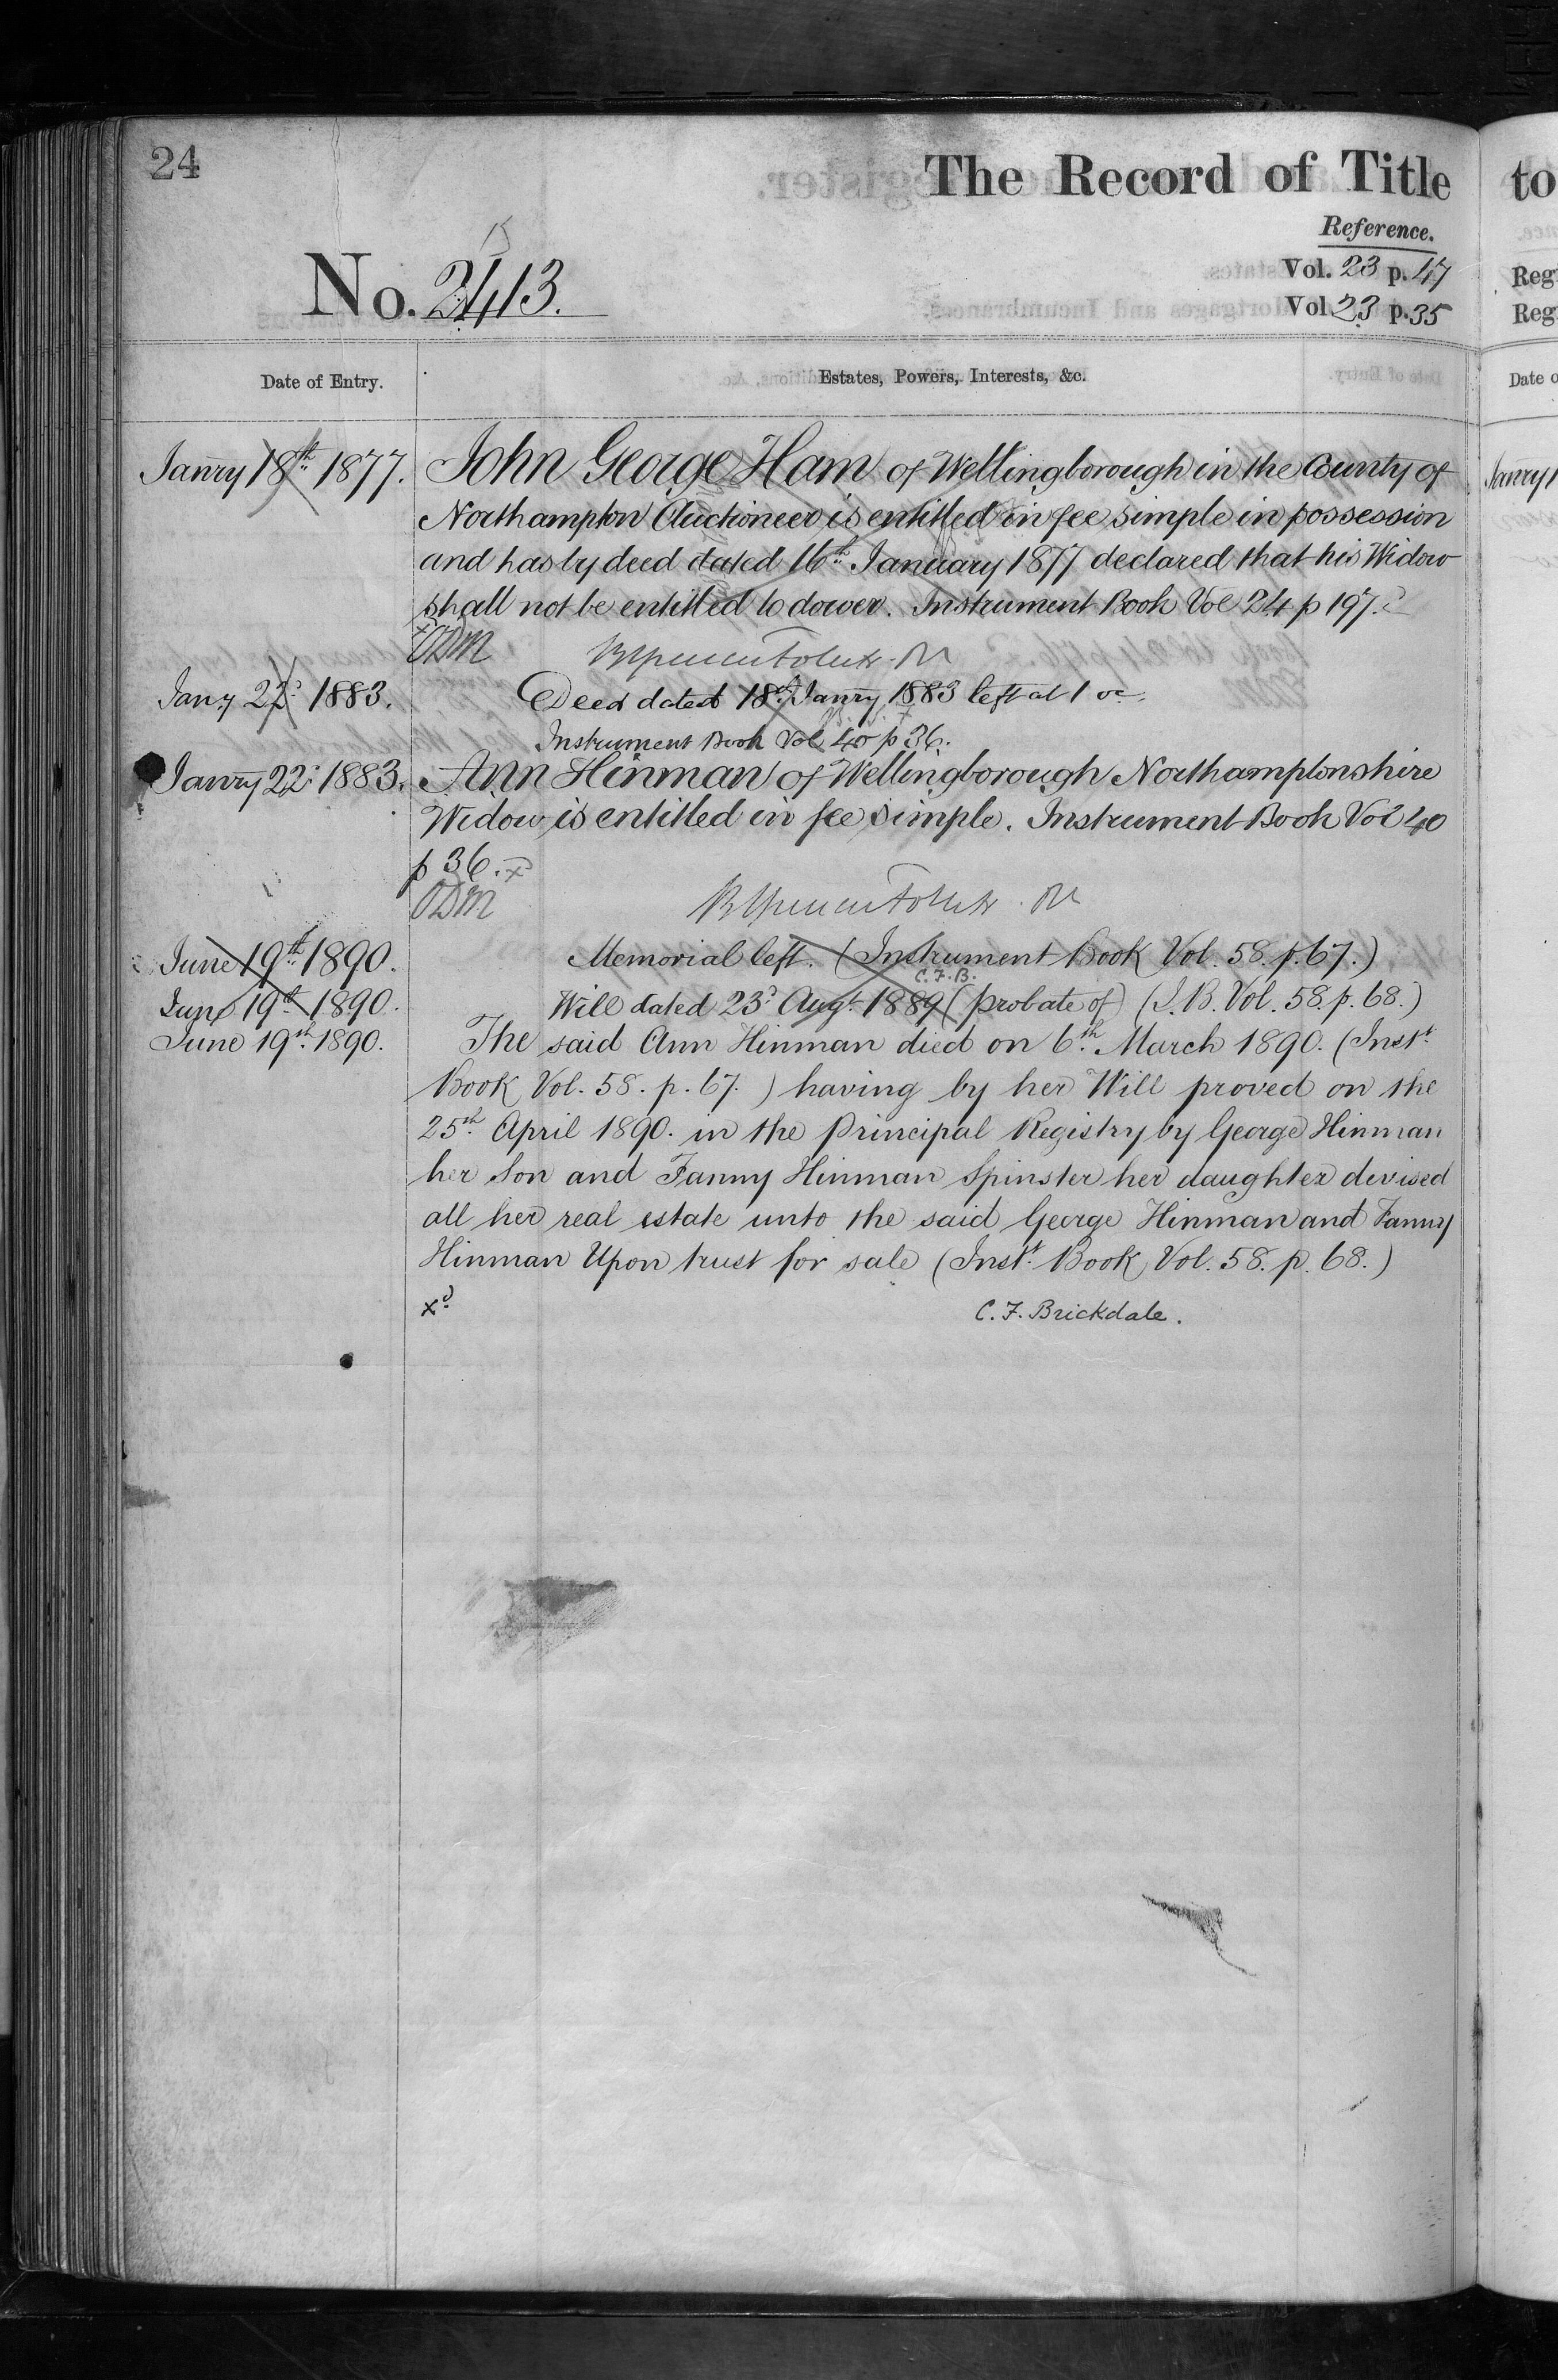 24
The Record of Title
to
Reference.
No. 2413.
Vol. 23 p. 47
Vol 23 p. 35
Reg
Reg
Date of Entry.
Estates, Powers, Interests, &c.
Date o
Janry 18th 1877.
John George Ham of Wellingborough in the County of
Northampton Auctioneer is entitled in fee simple in possession
and has by deed dated 16th January 1877 declared that his Widow
shall not be entitled to dower. Instrument Book Vol 24 p 197.
Jany 22d 1883.
Deed dated 18th Janry 1883 left at 1 oc.
Instrument Book Vol 40 p 36.
Janry 22d 1883.
Ann Hinman of Wellingborough Northamptonshire
Widow is entitled in fee simple. Instrument Book Vol 40
p 36. x
June 19th 1890.
Memorial left. (Instrument Book Vol. 58. p. 67.)
C.F.B.
June 19th 1890.
Will dated 23d Augt 1889 (probate of) (I.B. Vol. 58. p. 68.)
June 19th 1890.
The said Ann Hinman died on 6th March 1890. (Inst.
Book Vol. 58. p. 67.) having by her Will proved on the
25th April 1890. in the Principal Registry by George Hinman
her Son and Fanny Hinman Spinster her daughter devised
all her real estate unto the said George Hinman and Fanny
Hinman Upon trust for sale (Inst. Book Vol. 58. p. 68.)
xd
C. F. Brickdale.